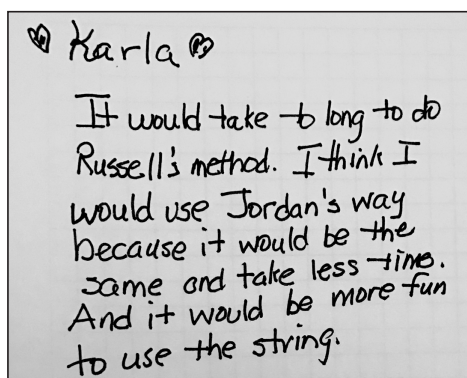 Karla
It would take to long to do
Russell's method. I think I
would use Jordan's way
because it would be the
same and take less time.
And it would be more fun
to use the string.